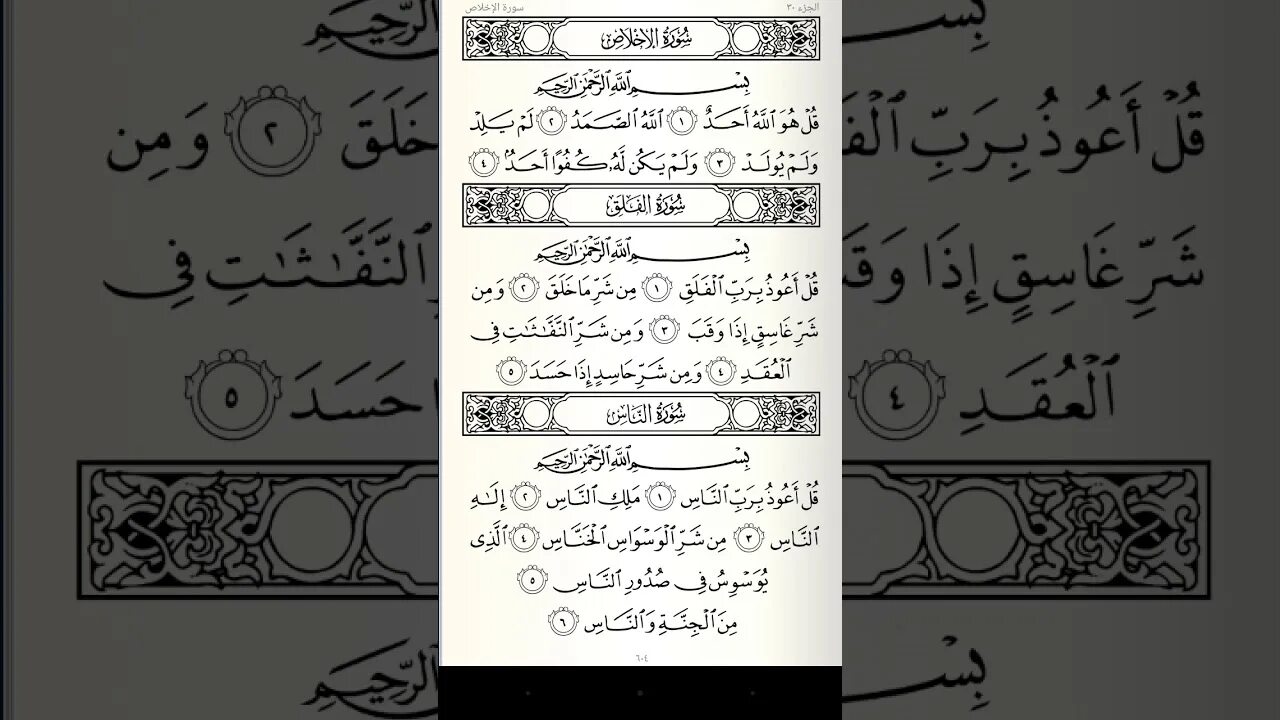 الجزء ٣٠
سورة الإخلاص
سُورَةُ الإِخْلَاصِ
بِسْمِ ٱللَّهِ ٱلرَّحْمَٰنِ ٱلرَّحِيمِ
قُلْ هُوَ ٱللَّهُ أَحَدٌ ١ ٱللَّهُ ٱلصَّمَدُ ٢ لَمْ يَلِدْ
وَلَمْ يُولَدْ ٣ وَلَمْ يَكُن لَّهُۥ كُفُوًا أَحَدٌۢ ٤
سُورَةُ الفَلَقِ
بِسْمِ ٱللَّهِ ٱلرَّحْمَٰنِ ٱلرَّحِيمِ
قُلْ أَعُوذُ بِرَبِّ ٱلْفَلَقِ ١ مِن شَرِّ مَا خَلَقَ ٢ وَمِن
شَرِّ غَاسِقٍ إِذَا وَقَبَ ٣ وَمِن شَرِّ ٱلنَّفَّٰثَٰتِ فِى
ٱلْعُقَدِ ٤ وَمِن شَرِّ حَاسِدٍ إِذَا حَسَدَ ٥
سُورَةُ النَّاسِ
بِسْمِ ٱللَّهِ ٱلرَّحْمَٰنِ ٱلرَّحِيمِ
قُلْ أَعُوذُ بِرَبِّ ٱلنَّاسِ ١ مَلِكِ ٱلنَّاسِ ٢ إِلَٰهِ
ٱلنَّاسِ ٣ مِن شَرِّ ٱلْوَسْوَاسِ ٱلْخَنَّاسِ ٤ ٱلَّذِى
يُوَسْوِسُ فِى صُدُورِ ٱلنَّاسِ ٥
مِنَ ٱلْجِنَّةِ وَٱلنَّاسِ ٦
٦٠٤
بِسْ
ٱلرَّحِيمِ
قُلْ أَعُوذُ بِرَبِّ ٱلْفَ
خَلَقَ ٢ وَمِن
شَرِّ غَاسِقٍ إِذَا وَقَ
ٱلنَّفَّٰثَٰتِ فِى
ٱلْعُقَدِ ٤
ا حَسَدَ ٥
بِسْ
ٱلرَّحِيمِ